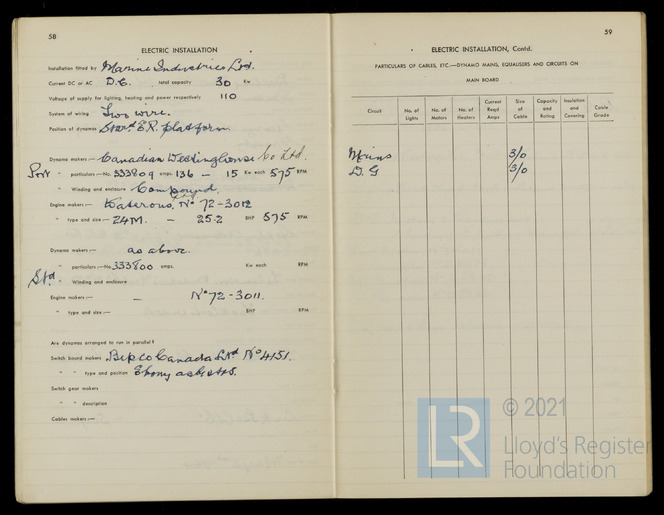 58
ELECTRIC INSTALLATION
Installation fitted by Marine Industries Ltd.
Current DC or AC D.C. total capacity 30 Kw
Voltage of supply for lighting, heating and power respectively 110
System of wiring Two wire.
Position of dynamos Starb'd E.R. platform
Dynamo makers:- Canadian Westinghouse Co Ltd.
Port " particulars:-No. 333809 amps. 136 - 15 Kw each 575 RPM
" Winding and enclosure Compound.
Engine makers:- Waterous, No 72-3012
" type and size:- Z4M. - 25.2 BHP 575 RPM
Dynamo makers:- as above.
" particulars:-No. 333800 amps. Kw each RPM
Stbd. " Winding and enclosure
Engine makers:- - No 72-3011.
" type and size:- BHP RPM
Are dynamos arranged to run in parallel?
Switch board makers Bepco Canada Ltd No 4151.
" " type and position Ebony asbestos.
Switch gear makers
" " description
Cables makers:-
59
ELECTRIC INSTALLATION, Contd.
PARTICULARS OF CABLES, ETC.—DYNAMO MAINS, EQUALISERS AND CIRCUITS ON
MAIN BOARD
Circuit No. of Lights No. of Motors No. of Heaters Current Reqd Amps Size of Cable Capacity and Rating Insulation and Covering Cable Grade
Mains 3/0
D.G 3/0
LR © 2021
Lloyd's Register
Foundation